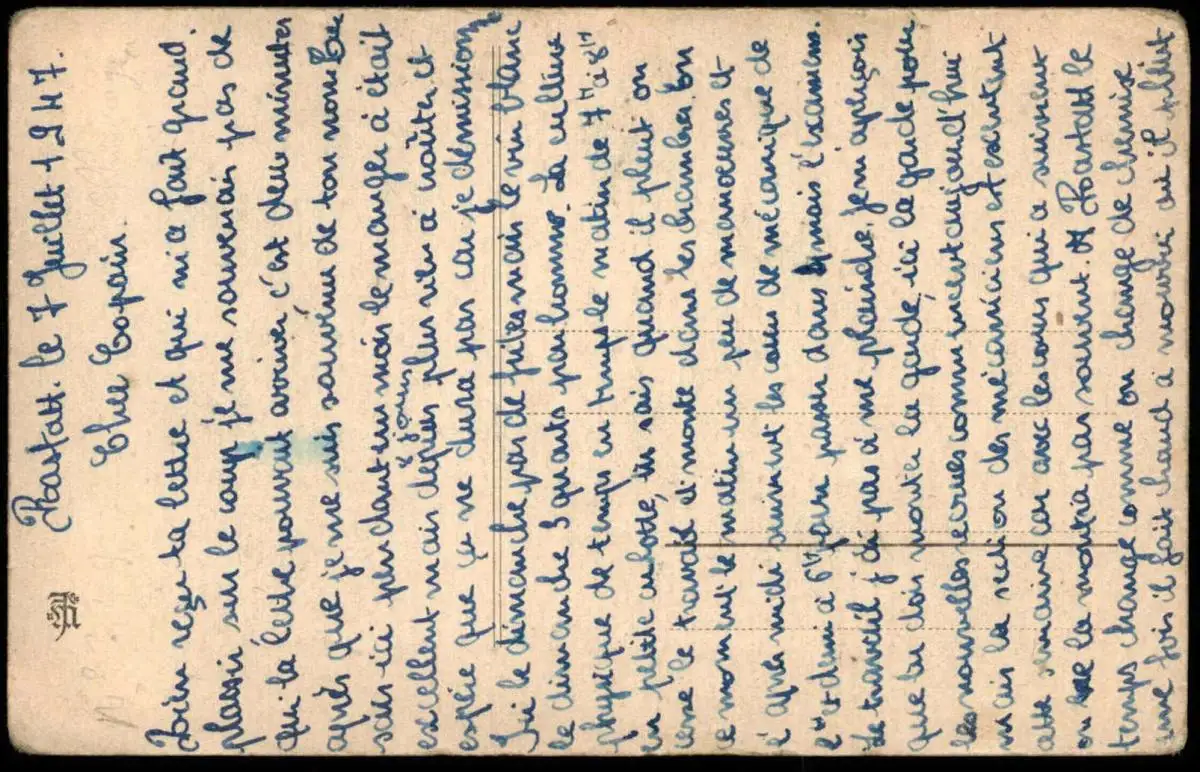 Rastatt. le 7 Juillet 1947.
Cher Copain.
Bien reçu ta lettre et qui m'a fait grand
plaisir sur le coup je me souvenais pas de
qui la lettre pouvait arriver, c'est deu minutes
après que je me suis souvenu de ton nom. Tu
sais ici pendant un mois le manger à était
excellent mais depuis 8 jours plus rien à croûter, et
espère que ça ne dura pas car je démissionne
Ici le dimanche pas de jules mais le vin blanc
le dimanche 3 quarts par homme. La culture
physique de temps en temps le matin de 7H à 8H
en petite culotte, tu sais quand il pleut on
cesse le travail et monte dans les chambres. On
ce moment le matin un peu de manoeuvres et
l'après midi suivent les cours de mécanique de
1H et demi à 6H pour passer dans 1 mois l'examens.
de travail j'ai pas à me plaindre, j'en aperçois
que tu dois monter la garde, ici la garde pour
les nouvelles recrues commencent aujourd'hui
mais la section des mécaniciens est exentent
cette semaine car avec les cours qui a suivent
on la montra pas souvent. A Rastatt le
temps change comme on change de chemise
une fois il fait chaud a mourir ou il pleut